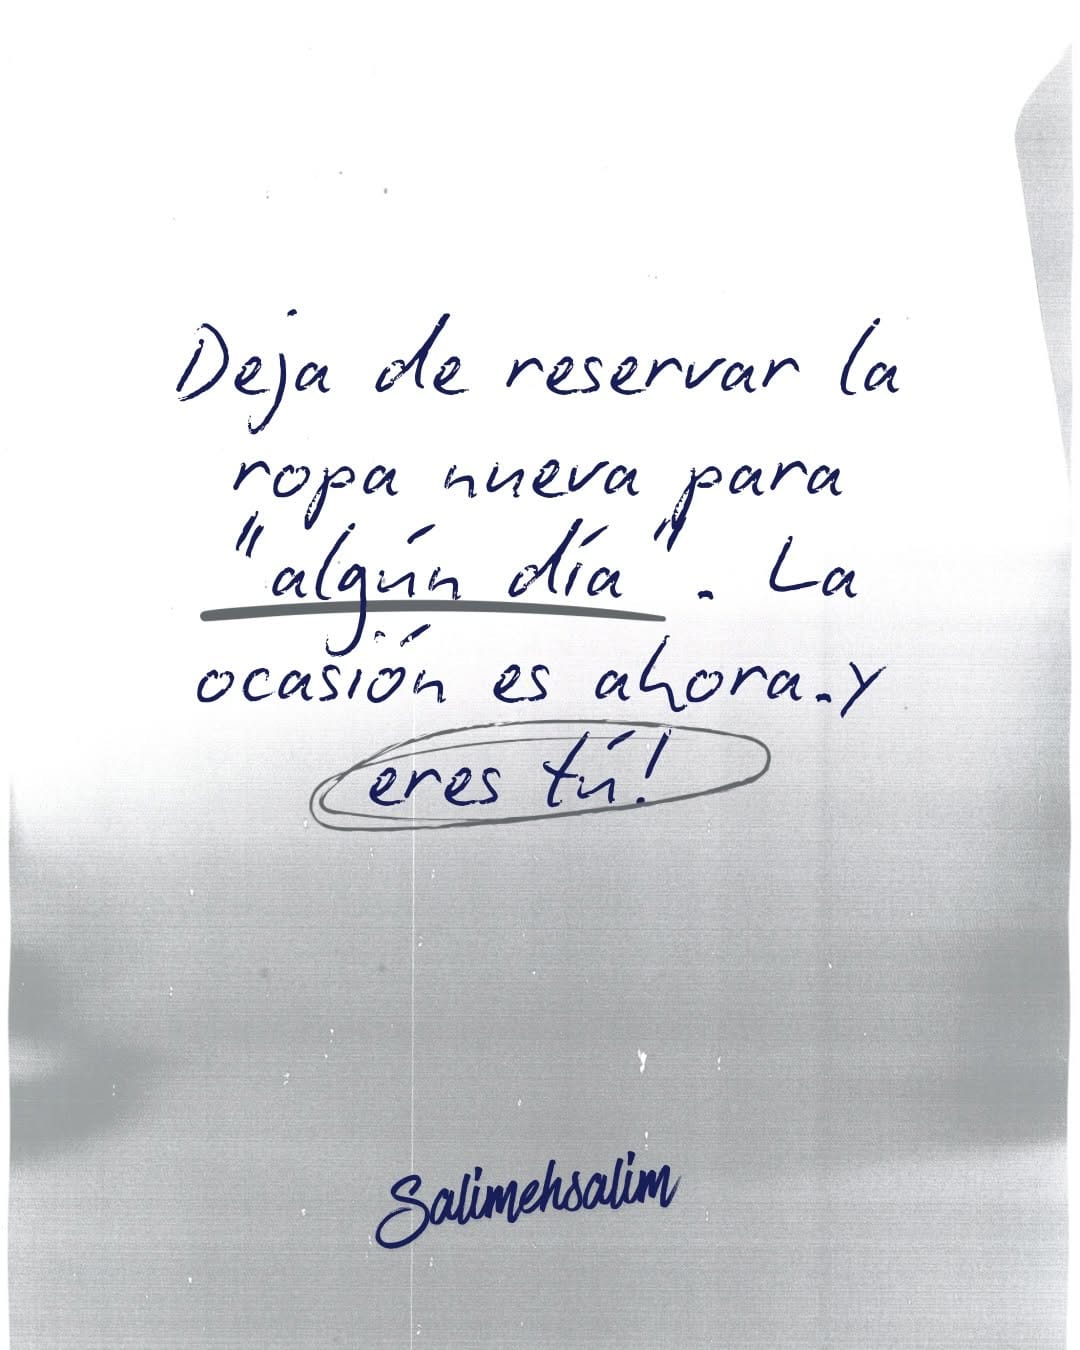 Deja de reservar la
ropa nueva para
"algún día". La
ocasión es ahora.y
eres tú!
Salimehsalim